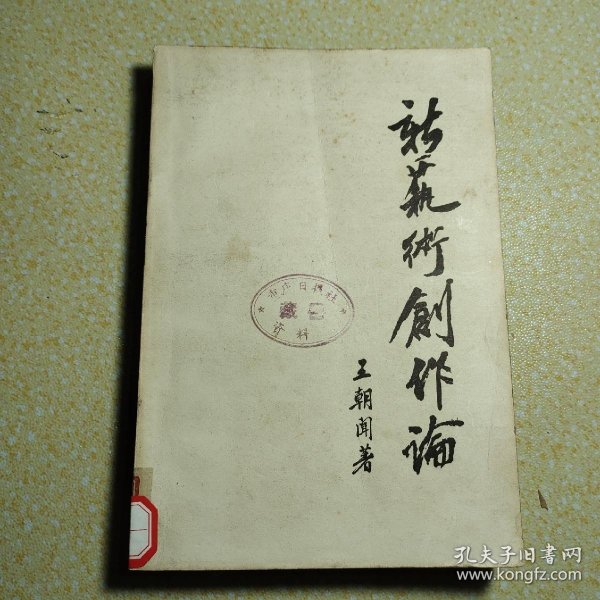 新藝術創作論
王朝聞著
資料
孔夫子旧书网
www.kongfz.com